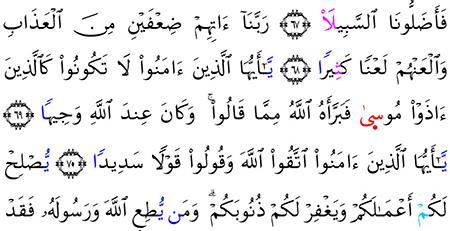 فَأَضَلُّونَا ٱلسَّبِيلَا۠ ﴿٦٧﴾ رَبَّنَآ ءَاتِهِمْ ضِعْفَيْنِ مِنَ ٱلْعَذَابِ
وَٱلْعَنْهُمْ لَعْنًا كَثِيرًا ﴿٦٨﴾ يَـٰٓأَيُّهَا ٱلَّذِينَ ءَامَنُوا۟ لَا تَكُونُوا۟ كَٱلَّذِينَ
ءَاذَوْا۟ مُوسَىٰ فَبَرَّأَهُ ٱللَّهُ مِمَّا قَالُوا۟ ۚ وَكَانَ عِندَ ٱللَّهِ وَجِيهًا ﴿٦٩﴾
يَـٰٓأَيُّهَا ٱلَّذِينَ ءَامَنُوا۟ ٱتَّقُوا۟ ٱللَّهَ وَقُولُوا۟ قَوْلًا سَدِيدًا ﴿٧٠﴾ يُصْلِحْ
لَكُمْ أَعْمَـٰلَكُمْ وَيَغْفِرْ لَكُمْ ذُنُوبَكُمْ ۗ وَمَن يُطِعِ ٱللَّهَ وَرَسُولَهُۥ فَقَدْ